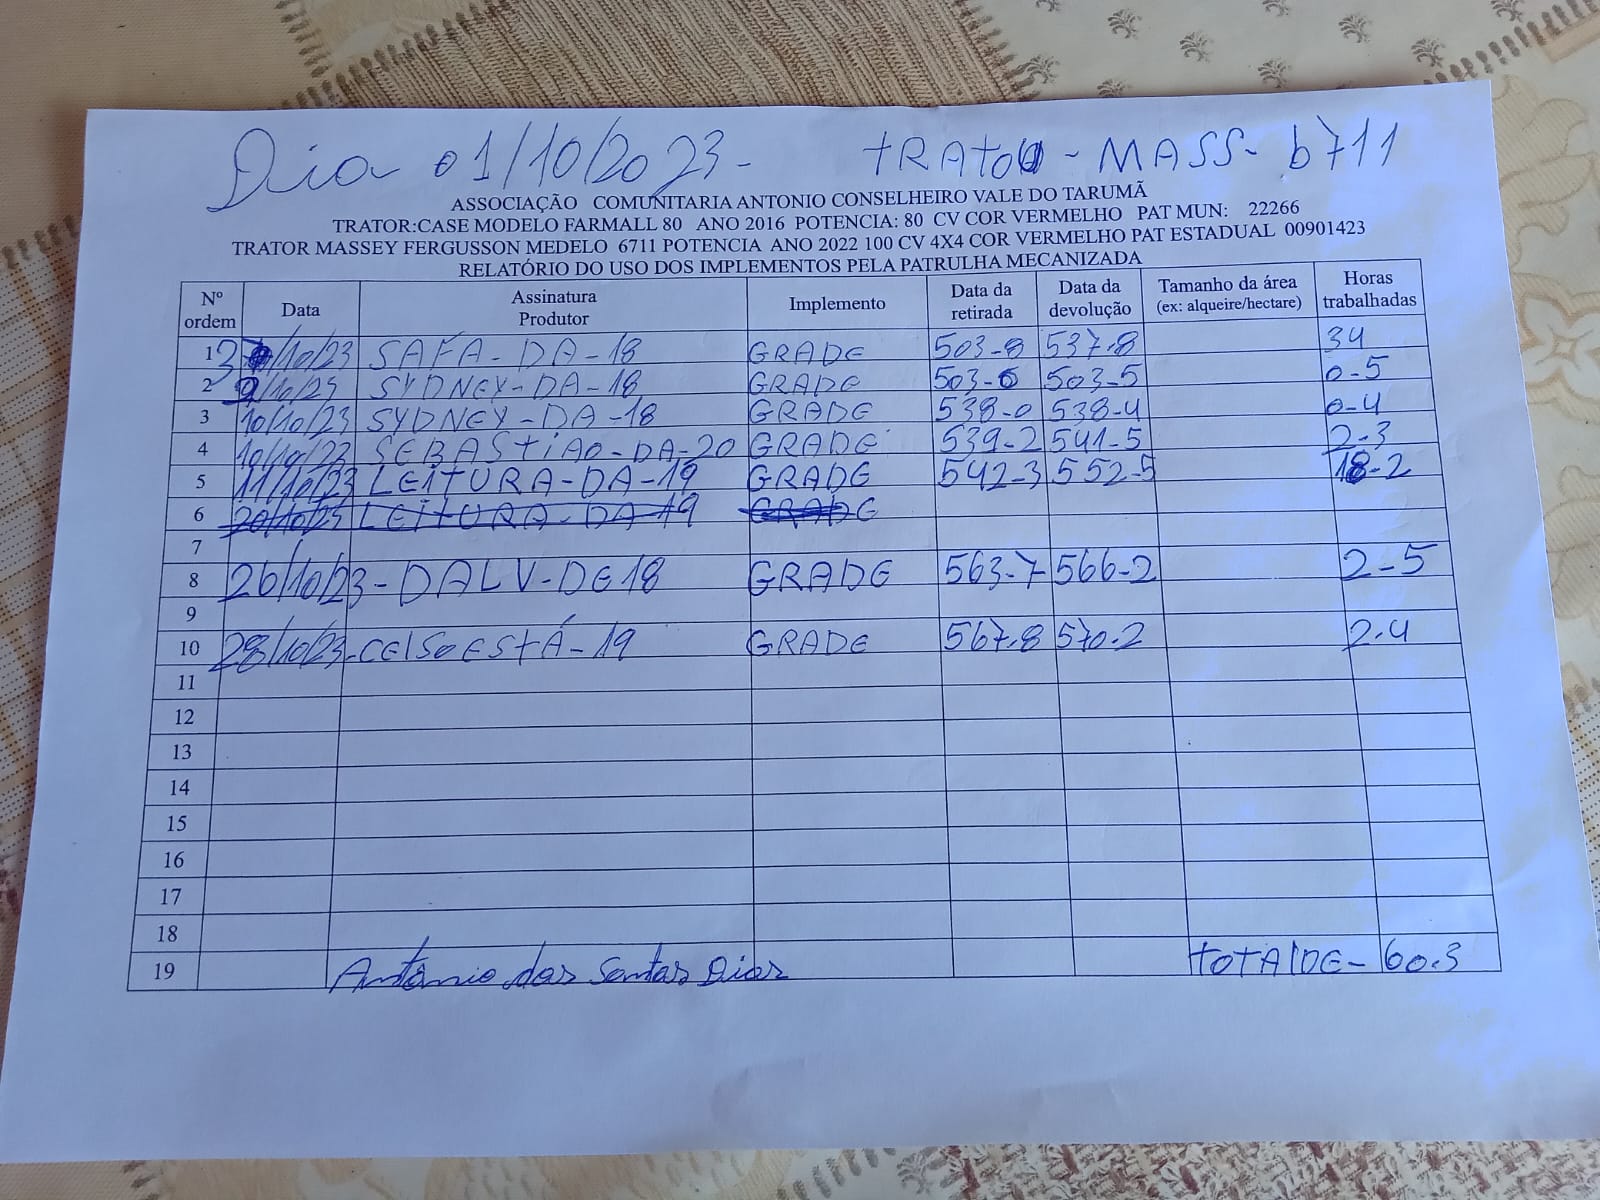 Dia 01/10/2023- TRATOR - MASS- 6711
ASSOCIAÇÃO COMUNITARIA ANTONIO CONSELHEIRO VALE DO TARUMÃ
TRATOR:CASE MODELO FARMALL 80 ANO 2016 POTENCIA: 80 CV COR VERMELHO PAT MUN: 22266
TRATOR MASSEY FERGUSSON MEDELO 6711 POTENCIA ANO 2022 100 CV 4X4 COR VERMELHO PAT ESTADUAL 00901423
RELATÓRIO DO USO DOS IMPLEMENTOS PELA PATRULHA MECANIZADA
Nº ordem Data Assinatura Produtor Implemento Data da retirada Data da devolução Tamanho da área (ex: alqueire/hectare) Horas trabalhadas
1 3/10/23 SAFA-DA-18 GRADE 503-8 537-8 34
2 9/10/23 SYDNEY-DA-18 GRADE 503-0 503-5 0-5
3 10/10/23 SYDNEY-DA-18 GRADE 538-0 538-4 0-4
4 10/10/23 SEBASTIÃO-DA-20 GRADE 539-2 541-5 2-3
5 11/10/23 LEITURA-DA-19 GRADE 542-3 552-5 18-2
6 20/10/23 LEITURA-DA-19 GRADE
7
8 26/10/23-DALV-DE18 GRADE 563-7 566-2 2-5
9
10 28/10/23-CELSO ESTÁ-19 GRADE 567.8 570.2 2.4
11
12
13
14
15
16
17
18
19 Antônio dos Santos Dias TOTAL DE- 60.3